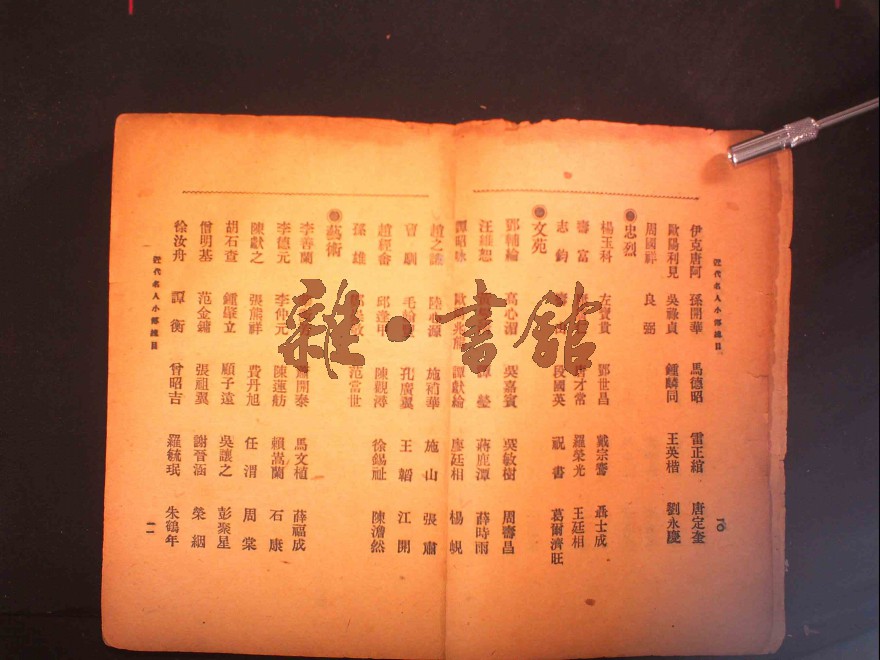 近代名人小傳總目
一〇
伊克唐阿 孫開華 馬德昭 雷正綰 唐定奎
歐陽利見 吳祿貞 鍾麟同 王英楷 劉永慶
周國祥 良弼
忠烈
楊玉科 左寶貴 鄧世昌 戴宗騫 聶士成
壽富 才常 羅榮光 王廷相
志鈞 段國英 祝書 葛爾濟旺
文苑
鄧輔綸 高心夔 吳嘉賓 吳敏樹 周壽昌
汪維恕 蔣鹿潭 薛時雨
譚昭咏 歐 兆熊 譚獻綸 廖廷相 楊峴
趙之謙 陸心源 施補華 施山 張肅
曾 毛 孔廣 王韜 江開
趙經畬 邱 陳觀潯 徐錫祉 陳澹然
孫雄 范當世
藝術
李善蘭 開泰 馬文植 薛福成
李德元 李仲元 陳蓮舫 賴嵩蘭 石康
陳獻之 張熊祥 費丹旭 任渭 周棠
胡石查 鍾肇立 顧子遠 吳讓之 彭聚星
僧明基 范金鏞 張祖翼 謝晉涵 榮綑
徐汝舟 譚衡 曾昭吉 羅毓珉 朱鶴年
近代名人小傳總目
一一
雜·書館